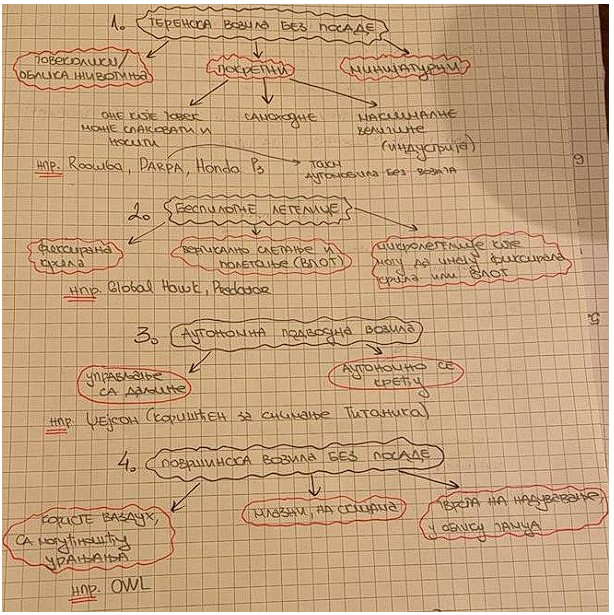 1. ТЕРЕНСКА ВОЗИЛА БЕЗ ПОСАДЕ
ЧОВЕКОЛИКИ/
ОБЛИКА ЖИВОТИЊА
ПОКРЕТНИ
МИНИЈАТУРНИ
ОНЕ КОЈЕ ЧОВЕК
МОЖЕ СПАКОВАТИ И
НОСИТИ
САМОХОДНЕ
МАКСИМАЛНЕ
ВЕЛИЧИНЕ
(ИНДУСТРИЈА)
НПР. Roomba, DARPA, Honda P3
ТАКМ.
АУТОМОБИЛА БЕЗ ВОЗАЧА
6
2. БЕСПИЛОТНЕ ЛЕТЕЛИЦЕ
ФИКСИРАНА
КРИЛА
ВЕРТИКАЛНО СЛЕТАЊЕ И
ПОЛЕТАЊЕ (ВЛОТ)
МИКРОЛЕТЕЛИЦЕ КОЈЕ
МОГУ ДА ИМАЈУ ФИКСИРАНА
КРИЛА ИЛИ ВЛОТ
НПР. Global Hawk, Predator
5.
3. АУТОНОМНА ПОДВОДНА ВОЗИЛА
УПРАВЉАЊЕ
СА ДАЉИНЕ
АУТОНОМНО СЕ
КРЕЋУ
НПР. ЏЕЈСОН (КОРИШЋЕН ЗА СНИМАЊЕ ТИТАНИКА)
4. ПОВРШИНСКА ВОЗИЛА БЕЗ ПОСАДЕ
КОРИСТЕ ВАЗДУХ,
СА МОГУЋНОШЋУ
УРАЊАЊА
МЛАЗНИ, НА СКИЈАМА
ЧВРСТА НА НАДУВАВАЊЕ,
У ОБЛИКУ ЧАМЦА
НПР. OWL